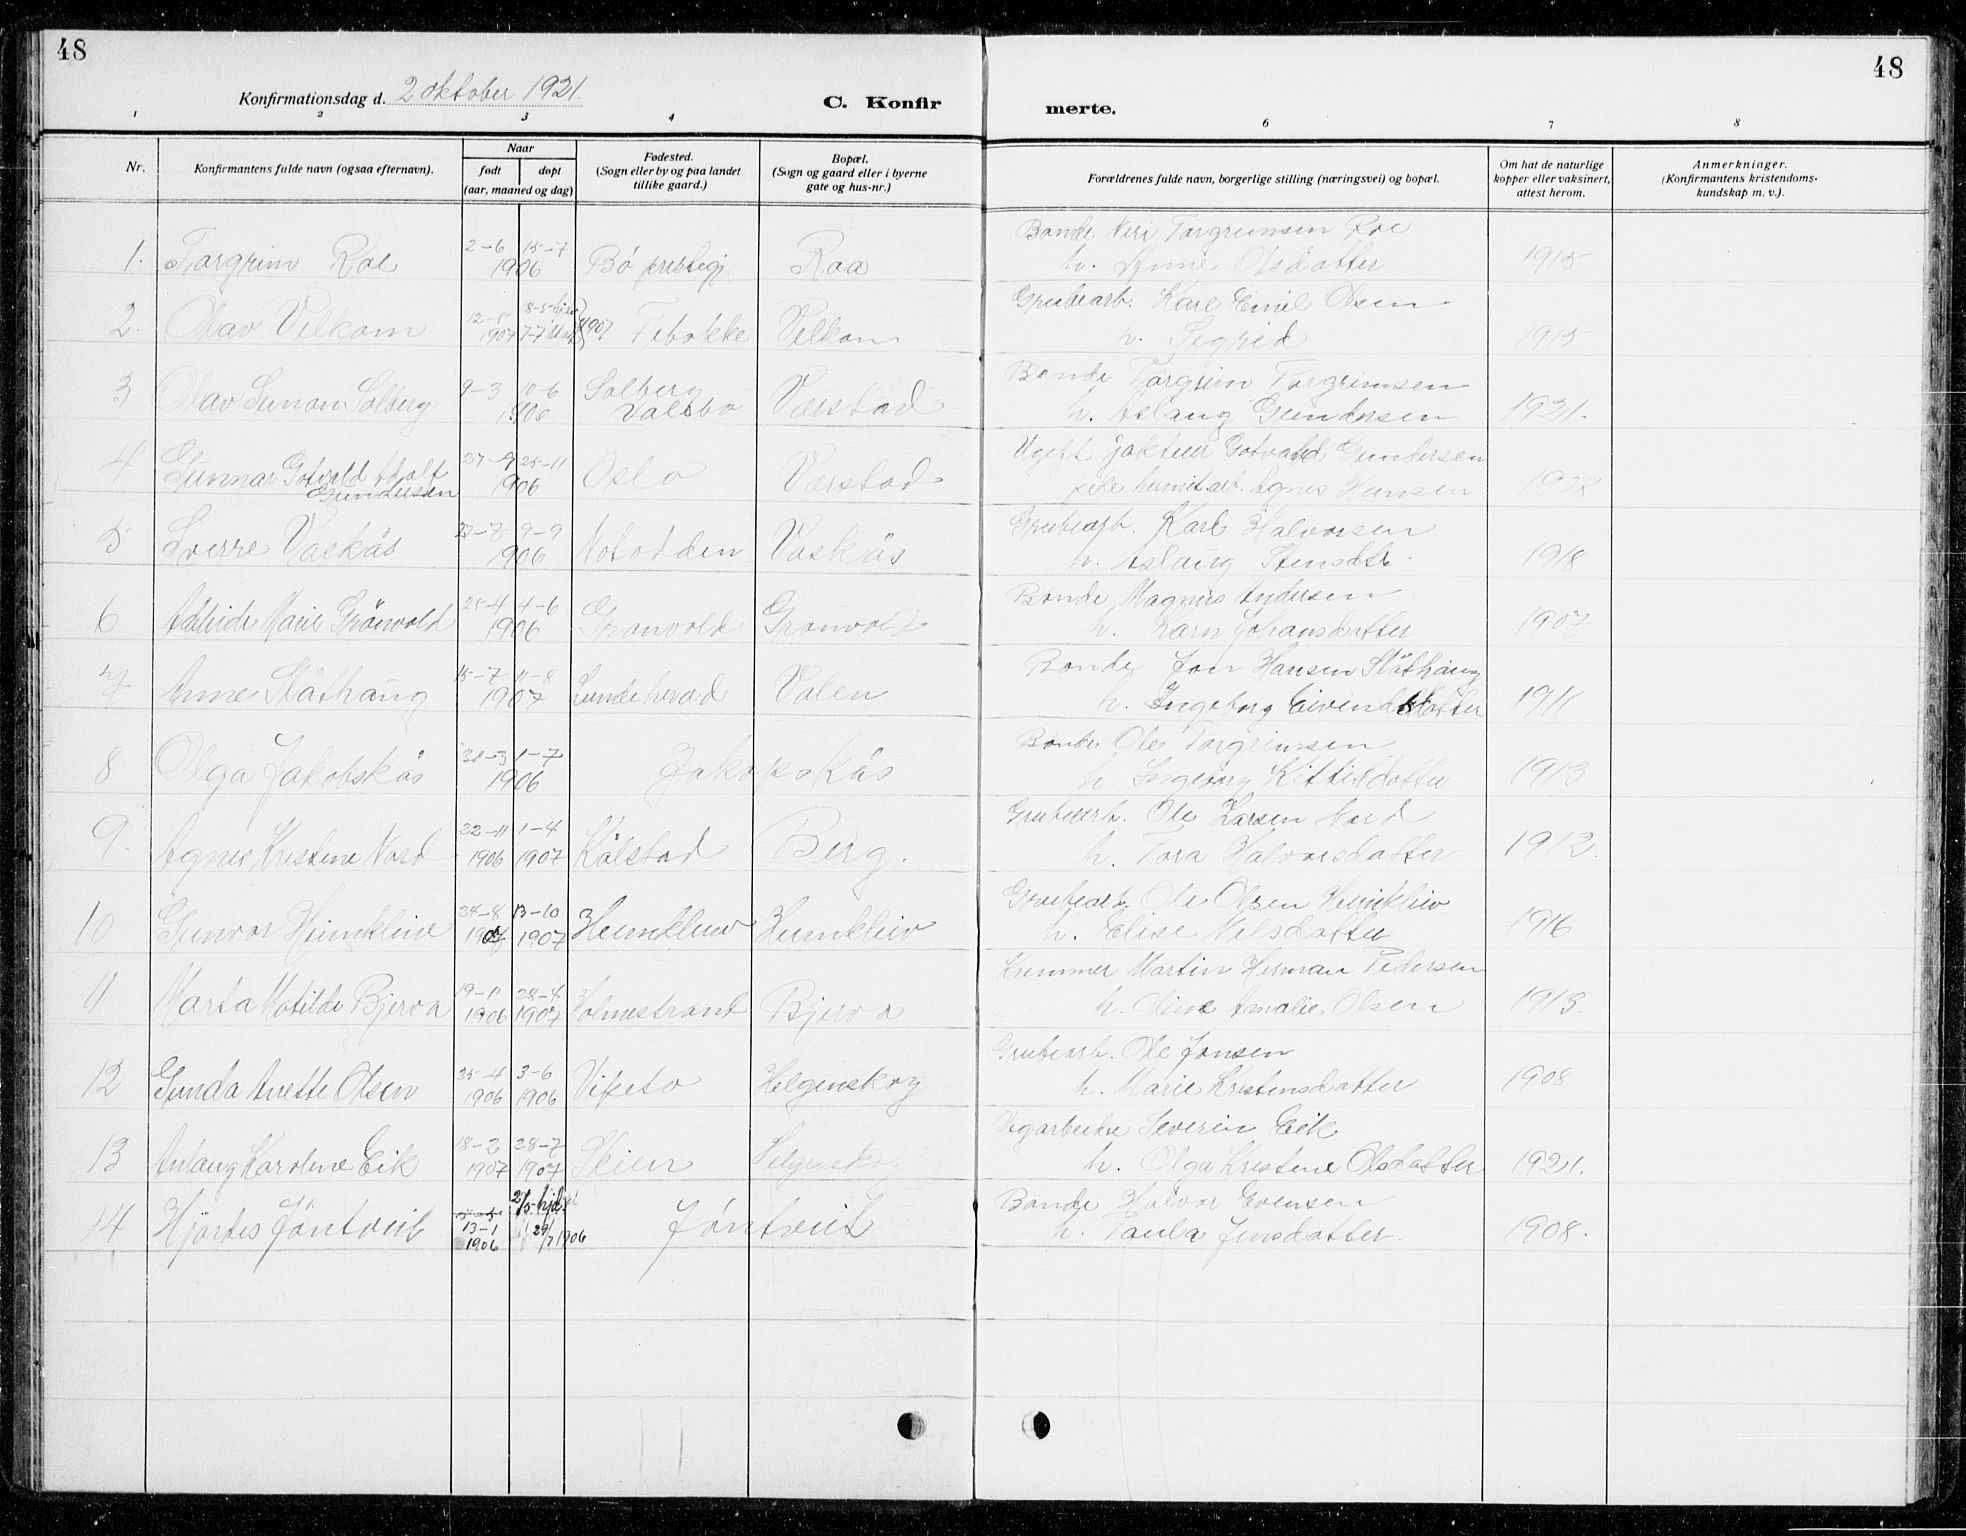 48
48
Konfirmationsdag d. 2 oktober 1921.
C. Konfir
merte.
1 2 3 4 6 7 8
Nr.
Konfirmantens fulde navn (ogsaa efternavn).
Naar
født døpt
(aar, maaned og dag)
Fødested.
(Sogn eller by og paa landet
tillike gaard.)
Bopæl.
(Sogn og gaard eller i byerne
gate og hus-nr.)
Forældrenes fulde navn, borgerlige stilling (næringsvei) og bopæl.
Om hat de naturlige
kopper eller vaksinert,
attest herom.
Anmerkninger.
(Konfirmantens kristendoms-
kundskap m. v.).
Bonde Neri Torgrimsen Roe
1. Torgrim Roe 2-6 15-7 1906 Bö prestegj. Roa h. Anne Olsdatter 1915
Grubearb. Karl Emil Olsen
2. Olav Velkom 12-5 1907 7-7 1907 Febakke Velkom h. Sigrid 1915
Bonde Torgrim Torgrimsen
3 Olav Gunan Solberg 9-3 10-6 1906 Solberg Valebø Værstad h. Aslaug Gundersen 1921.
Ugift Gotvald Gundersen
4 Gunnar Gotvald Adolf Gundersen 27-9 25-11 1906 Oslo Værstad pike Agnes Hansen
Grubearb. Karl Halvorsen
5 Sverre Vaskås 9-9 1906 Notodden Vaskås h. Aslaug Stensdtr. 1918
Bonde Magnus Andersen
6 Adleide Marie Grönvold 25-4 4-6 1906 Gronvold Gronvold h. Karn Johansdatter 1907
Bonde Jon Hansen Slåthaug
7 Anne Slåthaug 15-7 11-8 1907 Lundeherad Valen h. Ingeborg Eivindsdatter 1911
Bonde Ole Torgrimsen
8 Olga Jakobskås 30-3 1-7 1906 Jakopskås h. Ingeborg Kittilsdatter 1913
Grubearb. Ole Larsen Nord
9. Agnes Kristene Nord 22-11 1906 1-4 1907 Kålstad Berg. h. Tora Halvorsdatter 1912.
Grubearb. Ole Olsen Heimkleiv
10 Gunvor Heimkleiv 24-8 1907 13-10 1907 Heimkleiv Heimkleiv h. Elise Nelsdatter 1916
Kremmer Martin Herman Pedersen
11 Marta Matilde Bjerva 19-11 1906 28-4 1907 Holmestrand Bjerva h. Amalie Olsen 1913.
Grubearb. Ole Jonsen
12 Gunda Anette Olsen 25-4 1906 3-6 1906 Vipeto Helgenskog h. Marie Kristensdatter 1908
Vegarbeider Severin Eik
13 Aslaug Karoline Eik 18-2 1907 28-7 1907 Skien Helgensk h. Olga Kristene Olsdatter 1921.
Bonde Halvor Evensen
14 Hjördis Jöntveit 13-1 1906 2/5 hjd 29/7 1906 Jöntveit h. Paula Jensdatter. 1908.